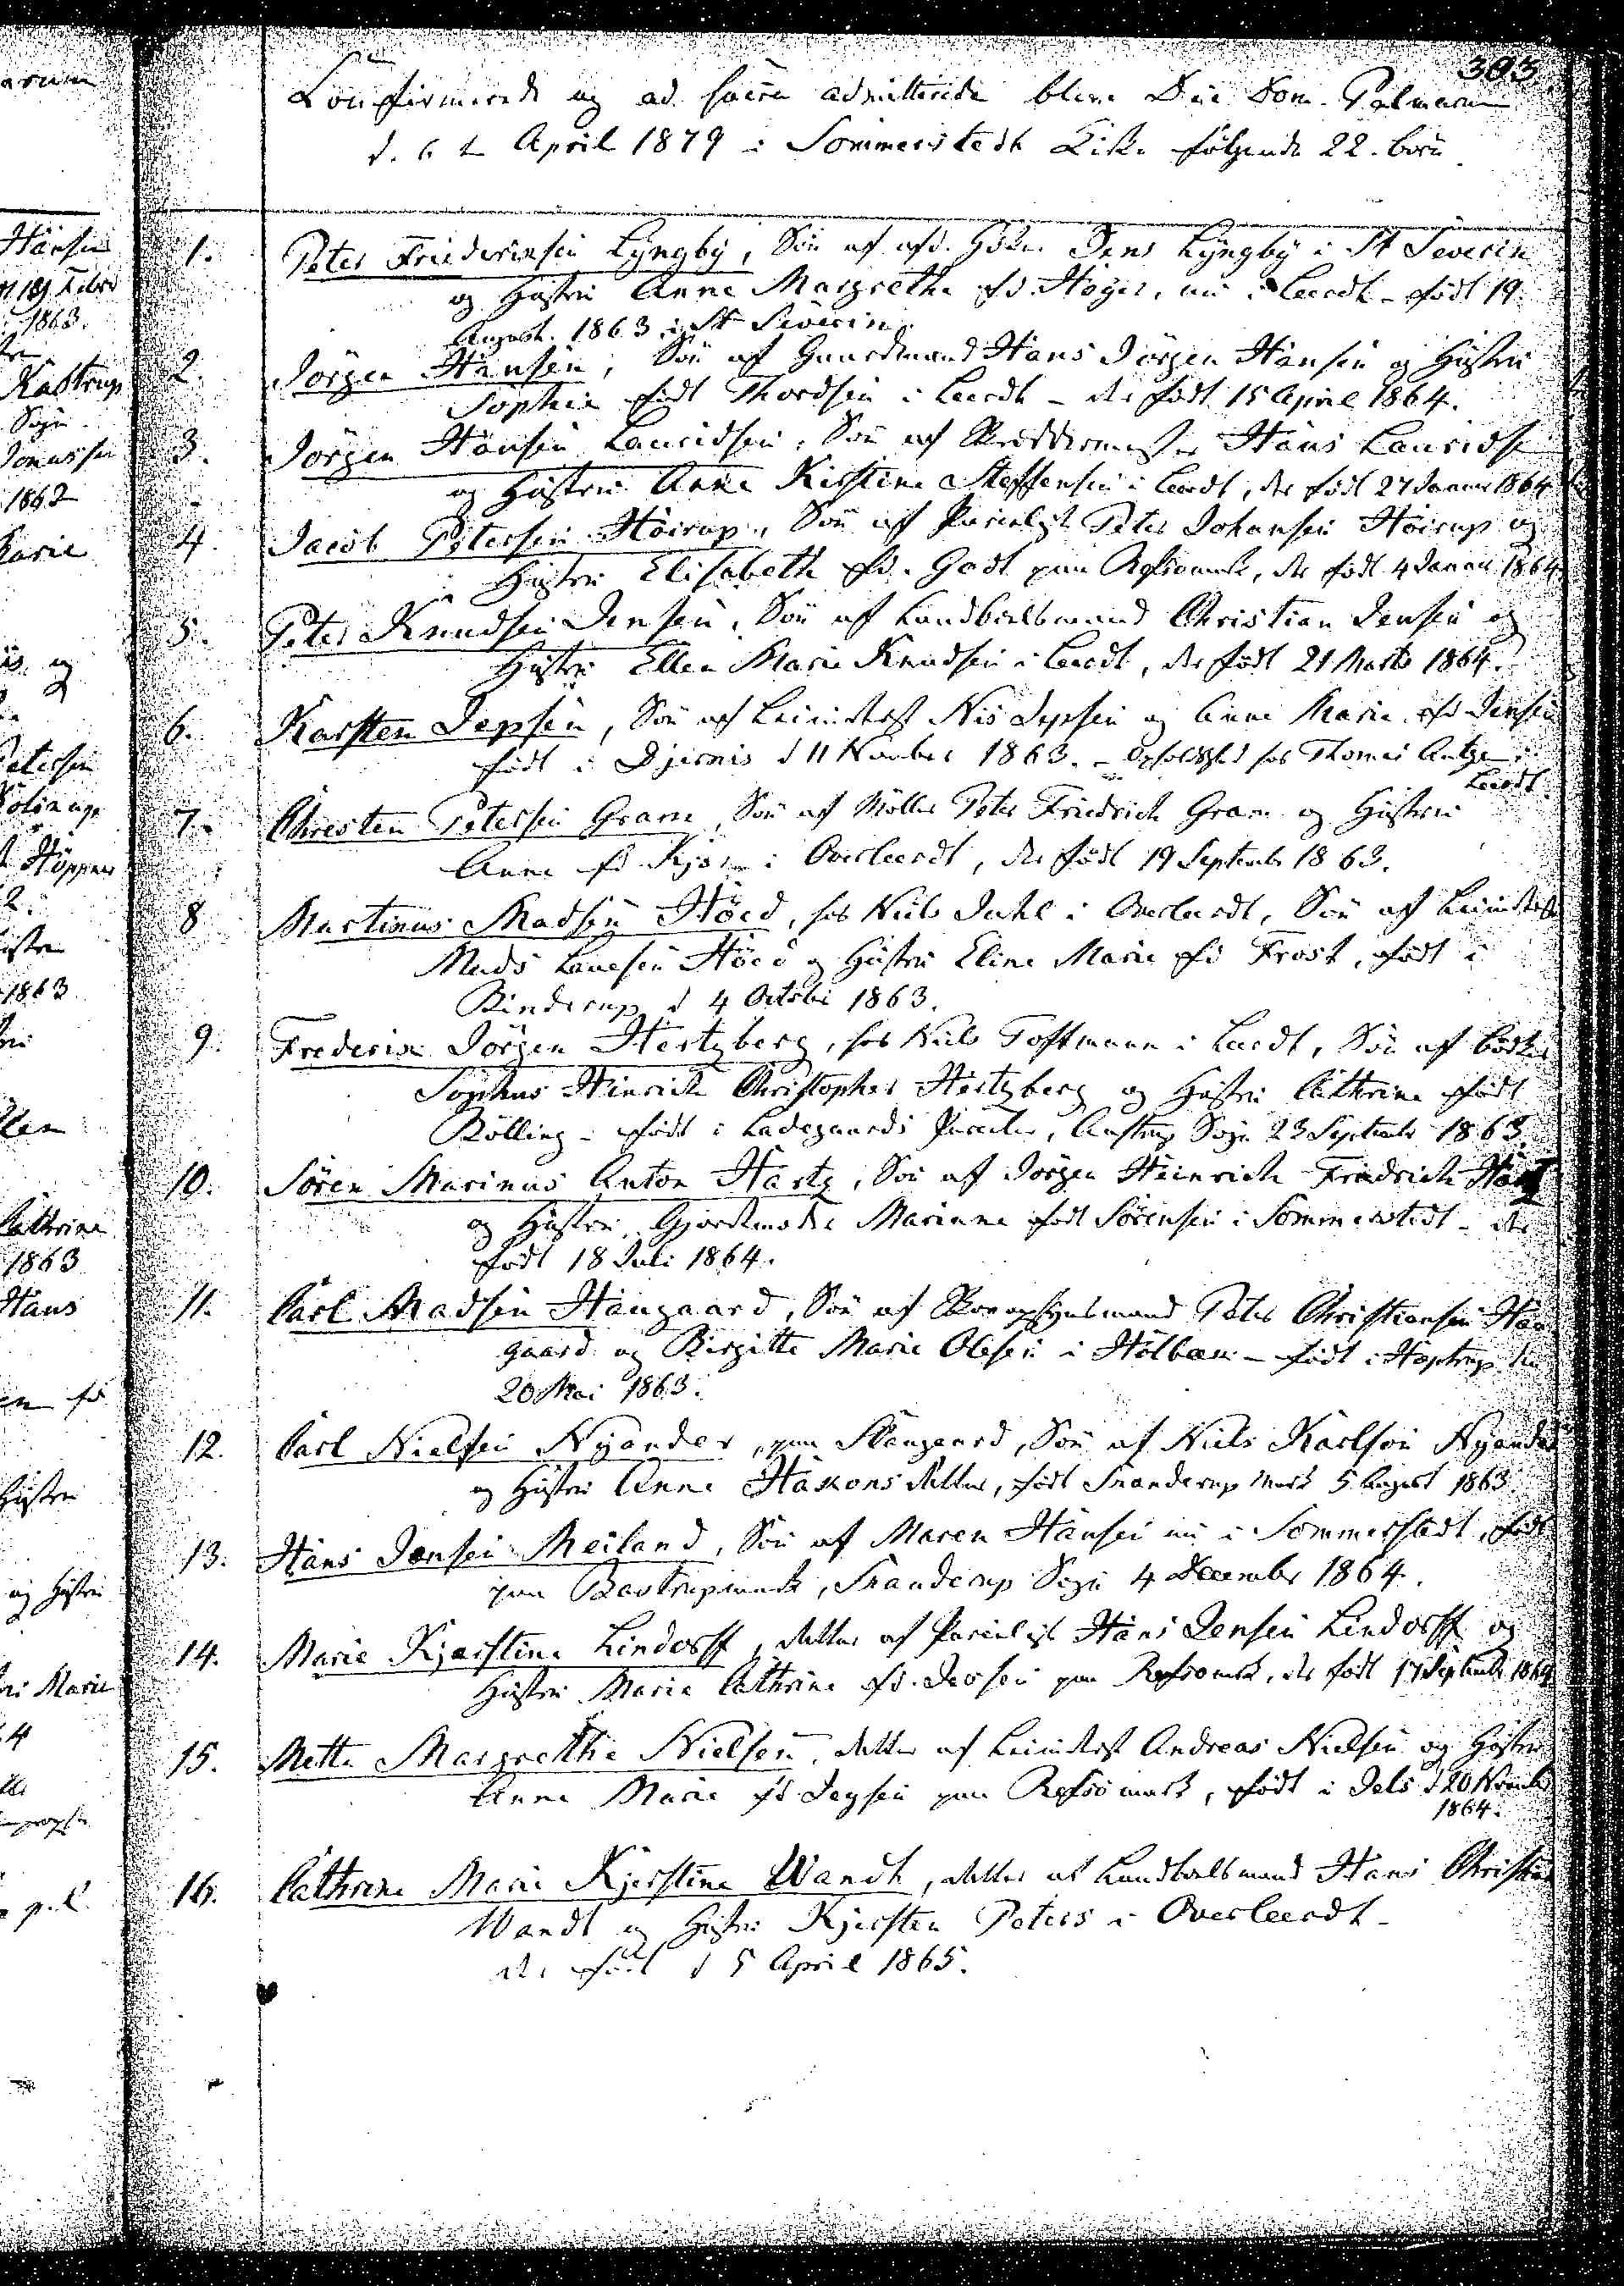 303
Confirmerede og ad sacra admitterede bleve Die Dom. Palmarum
d. 6te April 1879 i Sommerstedt Kirke følgende 22. børn
1. Peter Friederiksen Lyngby, Søn af afd. Jens Lyngby i St Severin
og Hustru Anne Margrethe fd. Høyer, nu i Leerdt - født 19
August. 1863 i St Severin.
2. Jörgen Hansen, Søn af Gaardmand Hans Jörgen Hansen og Hustru
Sophie født Thordsen i Leerdt - der født 15 April 1864.
3. Jörgen Hansen Lauridsen, Søn af Skræddermester Hans Lauridsen
og Hustru Anne Kirstine Steffensen i Leerdt, der født 27 Januar 1864
4. Jacob Petersen Höirup, Søn af Parcelist Peter Johansen Höirup og
Hustru Elisabeth fd. Godt paa Refsömark, der født 4 Januar 1864
5. Peter Knudsen Jensen, Søn af Landboelsmand Christian Jensen og
Hustru Ellen Marie Knudsen i Leerdt, der født 21 Marts 1864.
6. Karsten Jepsen, Søn af Leiinderst Nis Jepsen og Anne Marie fd Jensen
født i Djernis d 11 November 1863. - Opholdssted hos Thomas i
Leerdt
7. Chresten Petersen Gram, Søn af Møller Peter Friedrich Gram og Hustru
Anne fd. Kjær i Overleerdt, der født 19 September 1863.
8 Martinus Madsen Höed, hos Niels Juhl i Overleerdt, Søn af Leiinderst
Mads Lauesen Höed og Hustru Eline Marie fd Frost, født i
Binderup d 4 October 1863.
9. Frederik Jörgen Hertzberg, hos Niels Toftmann i Leerdt, Søn af Bødker
Sophus Hinrich Christopher Hertzberg og Hustru Cathrine født
Bölling - født i Ladegaards Parceler, Aastrup Sogn 23 September 1863.
10. Sören Marinus Anton Hartz, Søn af Jörgen Heinrich Friedrich Hartz
og Hustru, Gjordemoder Marianne født Sörensen i Sommerstedt - der
født 18 Juli 1864.
11. Carl Madsen Haugaard, Søn af Skovopsynsmand Peter Christiansen Hau
gaard og Birgitte Marie Olesen i Hölbæk - født i Hoptrup den
20 Mai 1863.
12. Carl Nielsen Nyander, paa Skaugaard, Søn af Niels Karlson Nyander
og Hustru Anne Hakons Datter, født Skanderup Mark 5 August 1863.
13. Hans Jensen Meiland, Søn af Maren Hansen nu i Sommerstedt, født
paa Bastrupmark, Skanderup Sogn 4 December 1864.
14. Marie Kjerstine Lindorff, Datter af Parcelist Hans Jensen Lindorff og
Hustru Marie Cathrine fd. Iversen paa Refsömark, der født 17 September 1864
15. Mette Margrethe Nielsen, Datter af Leiinderst Andreas Nielsen og Hustru
Anne Marie fd Jepsen paa Refsömark, født i Jels d 20 November
1864.
16. Cathrine Marie Kjerstine Wandt, Datter af Landboelsmand Hans Christian
Wandt og Hustru Kjersten Peters i Overleerdt -
der født d 5 April 1865.